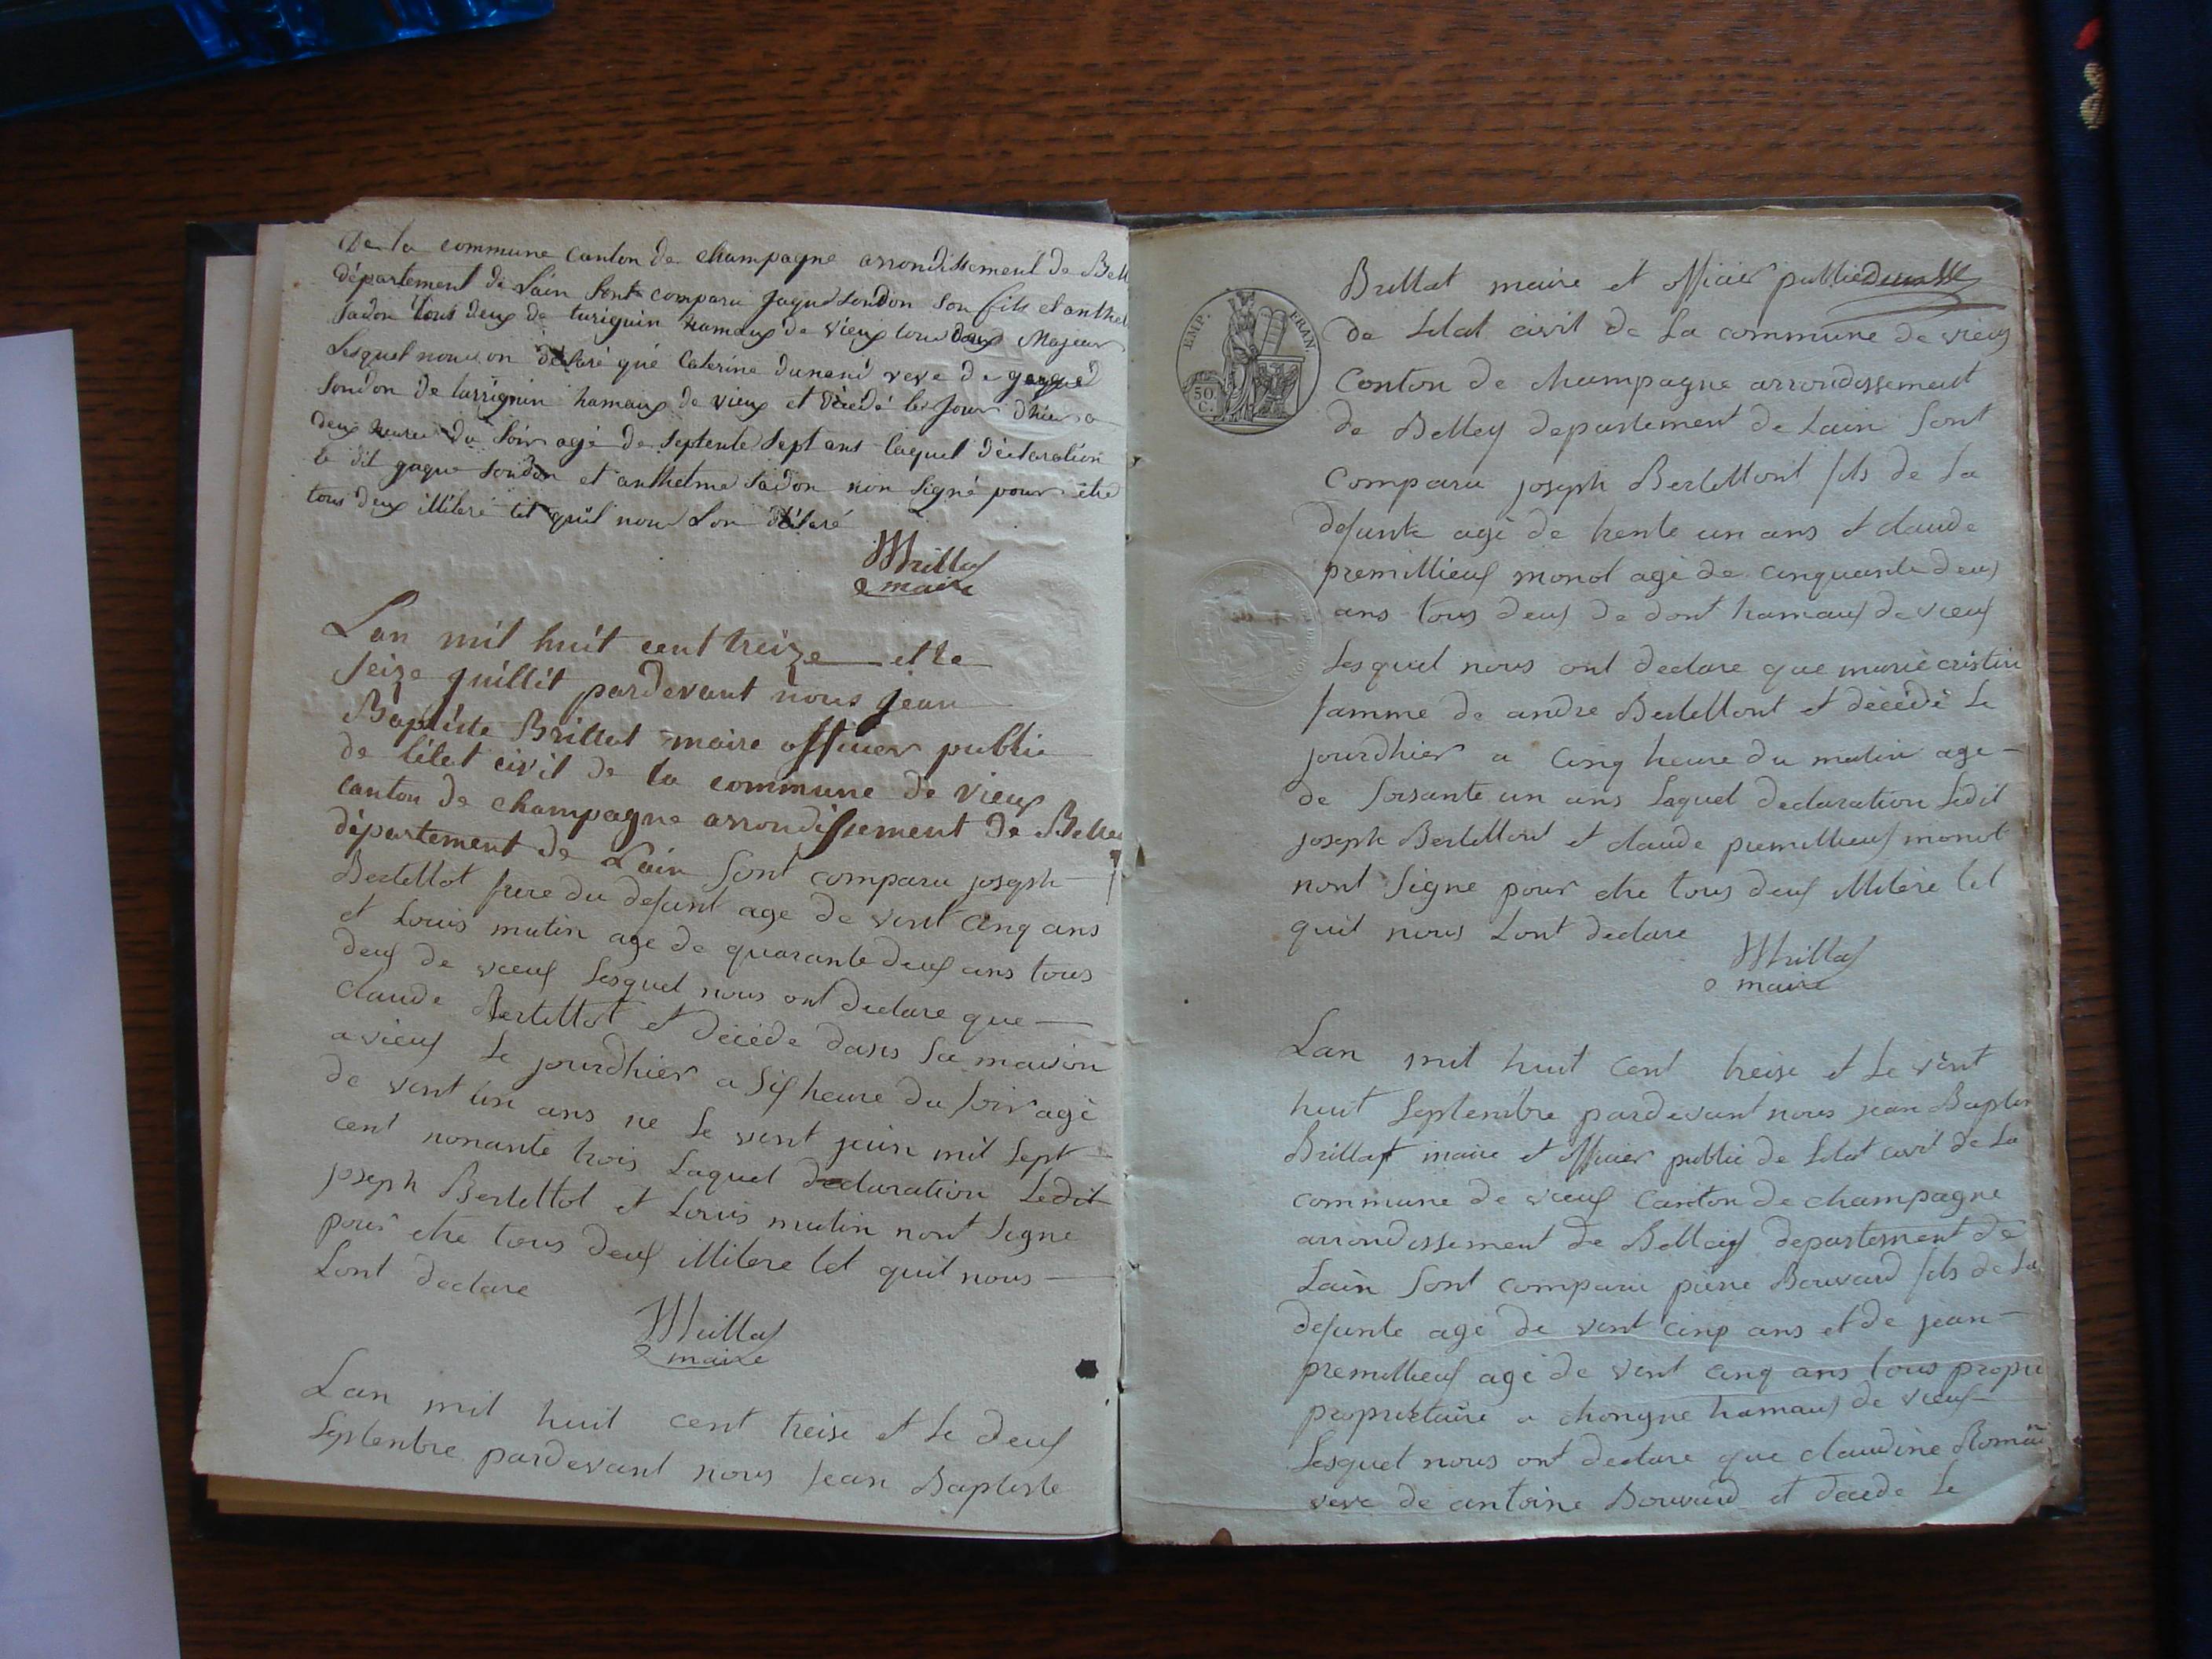 De la commune canton de champagne arrondissement de Bell
département de Lain sont comparu jaque sondon son fils et anthel
sadon tous deux de turignin hamaux de vieux tous deux Majeur
Lesquel nous on déclaré que Caterine dunand veve de
sondon de lurrignin hamaux de vieux et décédé le jour dhier a
deux heure du soir agé de septente sept ans laquel déclaration
le dit jaque sondon et anthelme sadon non signé pour être
tous deux illiteré tel quil nous Lon déclaré
Brillat
maire
Lan mil huit cent treize et le
seize juillit pardevant nous jean
Baptiste Brillat maire officier public
de létet civil de la commune de vieux
canton de champagne arrondissement de Belley
département de Lain sont comparu joseph
Bertellot frere du defunt age de vent cinq ans
et Louis mutin age de quarante deux ans tous
deux de vieux Lesquel nous ont declare que
claude Bertellot et décéde dans sa maison
a vieux Le jourdhier a six heure du soir agé
de vent un ans ne Le vent juin mil sept
cent nonante trois Laquel declaration Ledit
joseph Bertellot et Louis mutin nont signe
pour etre tous deux illitere tel quil nous
Lont declare
Brillat
maire
Lan mil huit cent treise et Le deux
Septenbre pardevant nous Jean Baptiste
EMP. FRAN.
50. C.
Brillat maire et officier public
de Letat civil de La commune de vieux
Conton de champagne arrondissement
de Belley departement de Lain sont
Comparu joseph Bertellont fils de La
defunte agé de trente un ans et claude
premillieux monot agé de cinquante deux
ans tous deux de dont hamaux de vieux
Lesquel nous ont declare que marie cristin
famme de andre Bertellont et décédé Le
jourdhier a cinq heure du matin age
de soisante un ans Laquel declaration Ledit
joseph Bertellont et claude premillieux monot
nont signe pour etre tous deux illitére tel
quil nous Lont declare
Brillat
maire
Lan mil huit cent treise et Le vent
huit Septenbre pardevant nous jean Baptis
Brillat maire et officier public de Letat civil de La
commune de vieux canton de champagne
arrondissement de Belley departement de
Lain sont comparu piérre Bouvard fils de La
defunte agé de vent cinq ans et de jean
premillieux agé de vent cinq ans tous propri
proprietaire a chongne hamaux de vieux
Lesquel nous ont declare que claudine Romain
veve de antoine Bouvard et decede Le